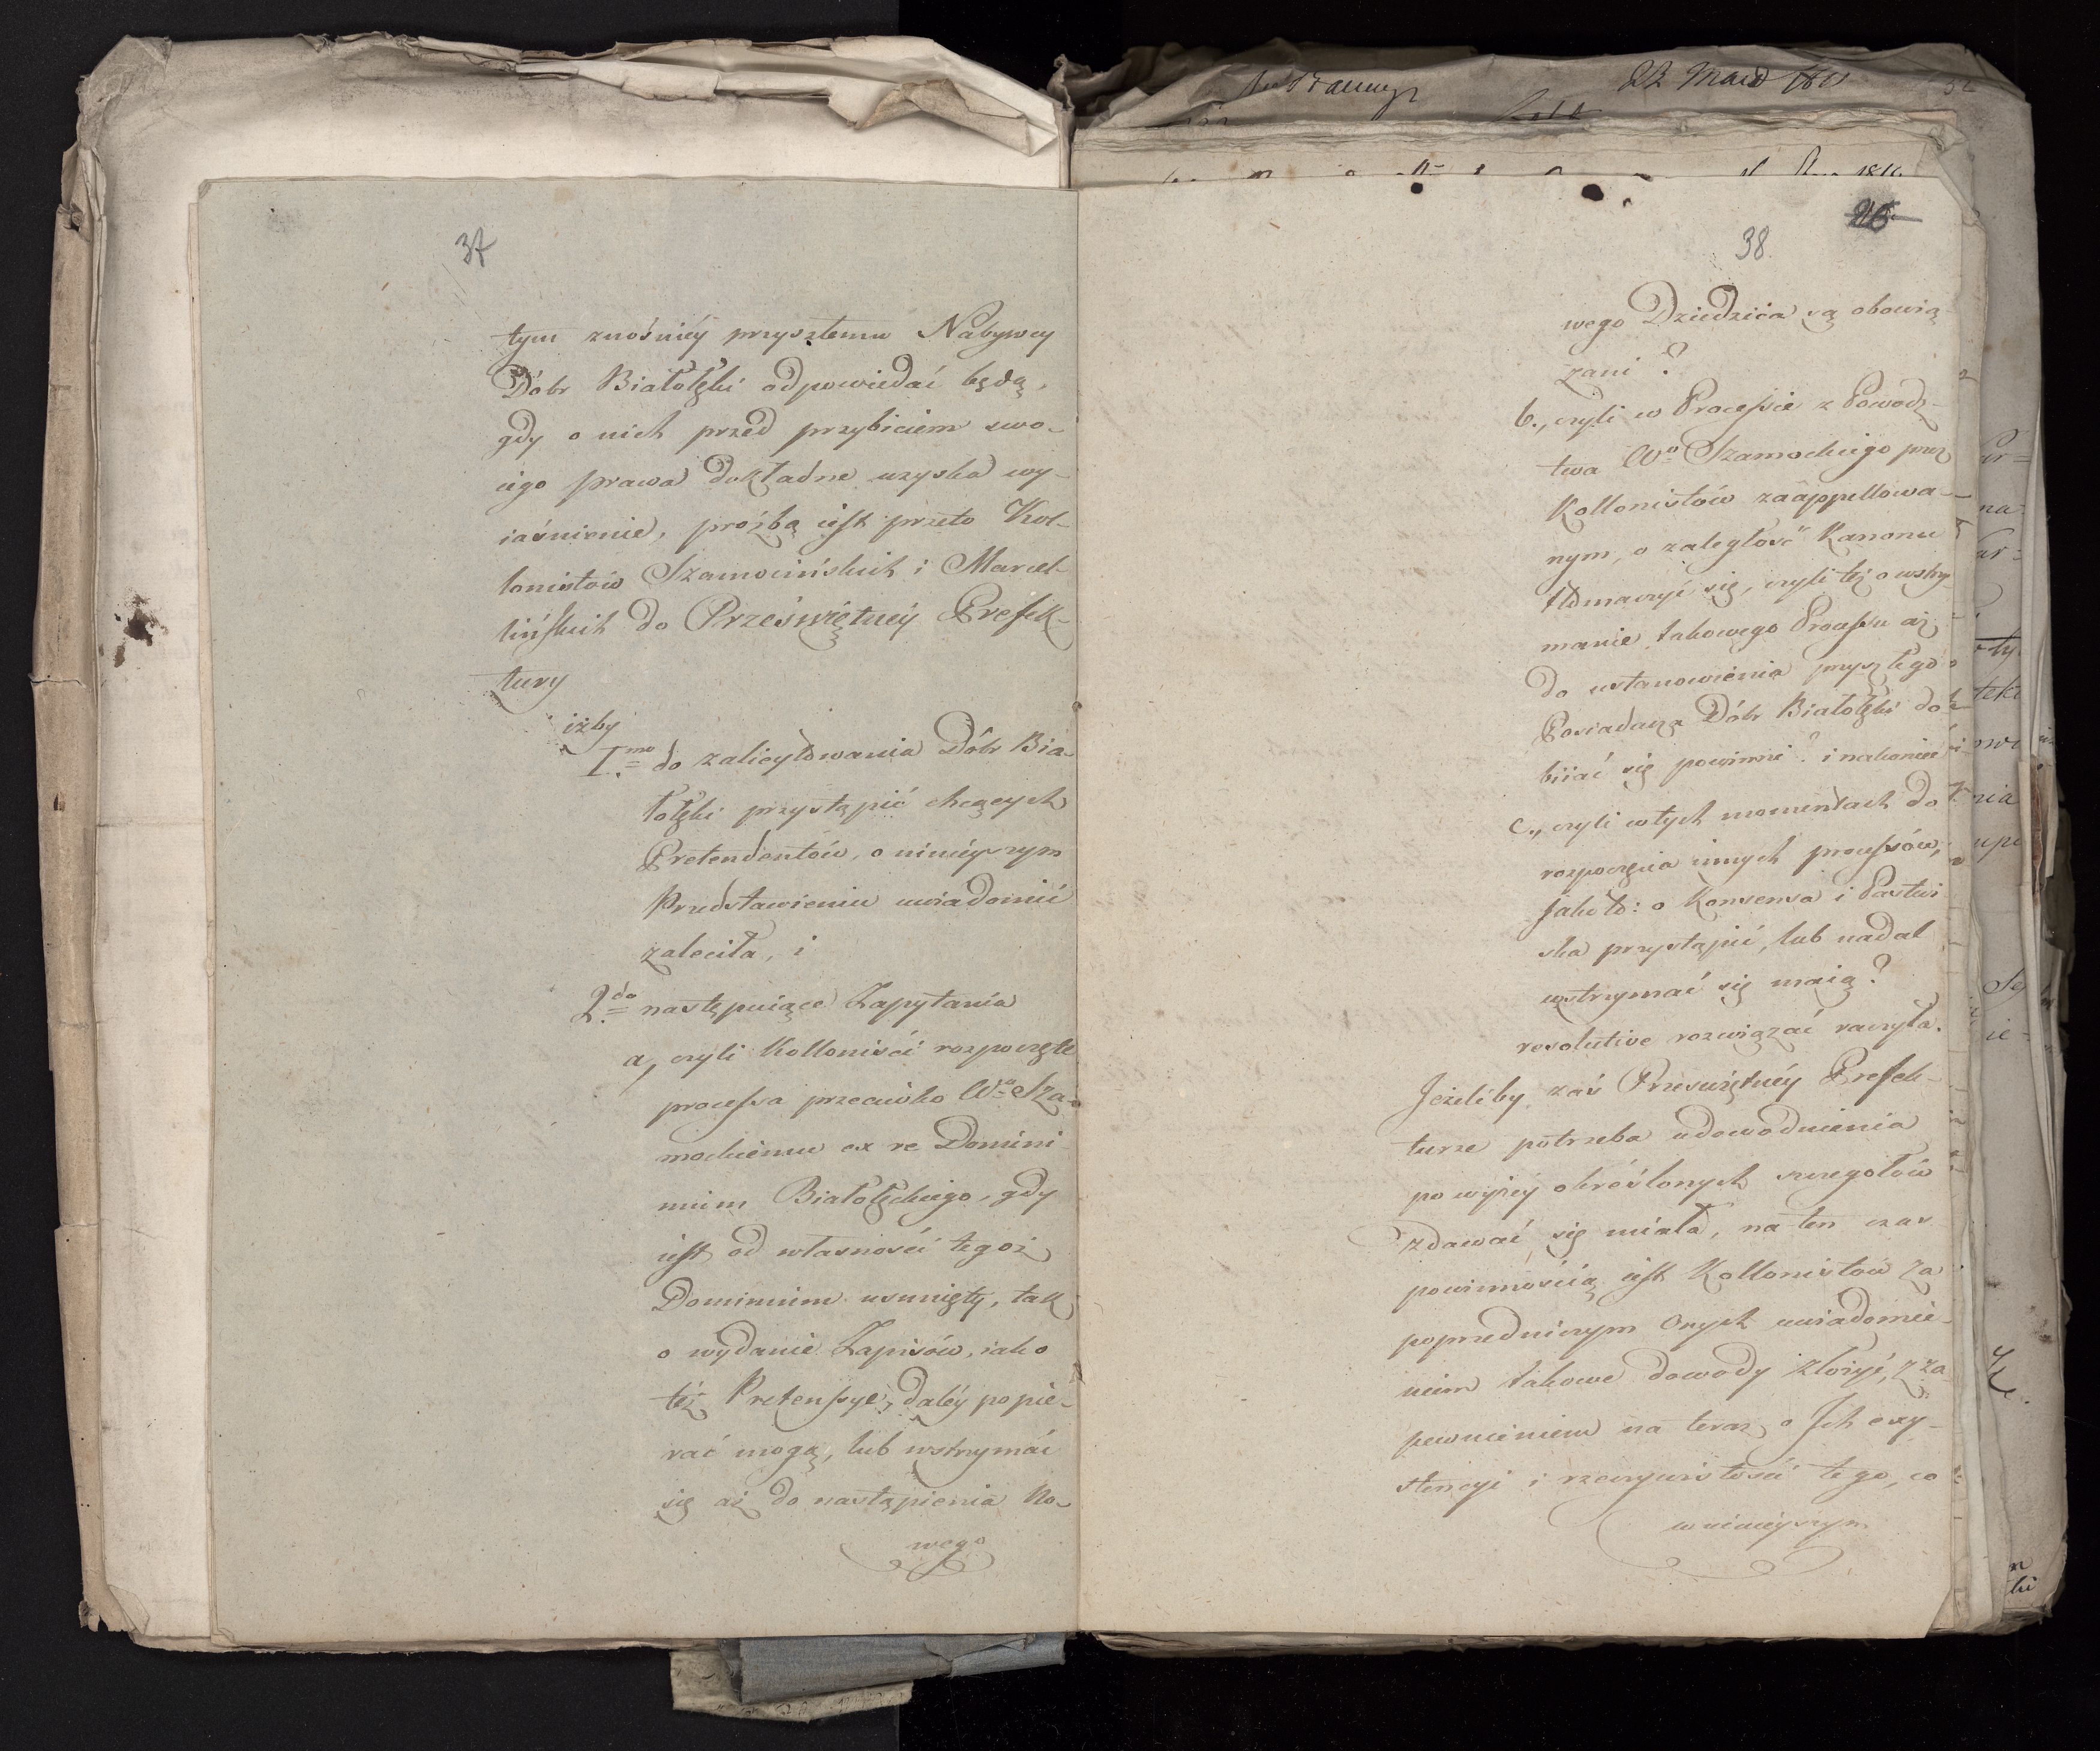 37
tym znośniéy przyszłemu Nabywcy
Dóbr Białołęki odpowiedać będą,
gdy o nich przed przybiciem swo-
iego prawa dokładne uzyska wy-
iaśnienie, prośbą iest przeto Kol-
lonistów Szamocińskich i Marcel-
lińskich do Przeświętnéy Prefek-
tury
iżby
I.mo do zalicytowania Dóbr Bia-
łołęki przystąpić chcących
Pretendentów, o ninieyszym
Przedstawieniu uwiadomić
zaleciła, i
2.do następuiące Zapytania
a, czyli Kolloniści rozpoczęte
processa przeciwko Wo Sza-
mockiemu ex re Domini
nium Białołęckiego, gdy
iest od własności tegoż
Dominium usunięty, tak
o wydanie Zapisów, iako
też Pretensye, daléy popie-
rać mogą, lub wstrzymać
się aż do nastąpienia No-
wego
22 Mars
1810
26
38.
wego Dziedzica są obowią-
zani?
b., czyli w Processie z Powodz-
twa Wo Szamockiego przez
Kollonistów zaappellowa-
nym, o zaległość Kanonu
tłomaczyć się, czyli też o wstrzy-
manie takowego Processu aż
do ustanowienia przyszłego
Posiadacza Dóbr Białołęki do-
biiać się powinni? i nakoniec
c., czyli w tych momentach do
rozpoczęcia innych processów,
jako to: o Konsensa i Pastwi
ska przystąpić, lub nadal
wstrzymać się maią?
resolutive rozwiązać raczyła.
Jeżeliby zaś Przeświętnéy Prefek-
turze potrzeba udowodnienia
powyżéy okréślonych szczegołów
zdawać się miała, na ten czas
powinnością iest Kollonistów za
poprzedniczym Onych uwiadomie-
niem takowe dowody złożyć, z za-
pewnieniem na teraz o Ich exy-
stencyi i rzeczywistości tego, co
w ninieyszym